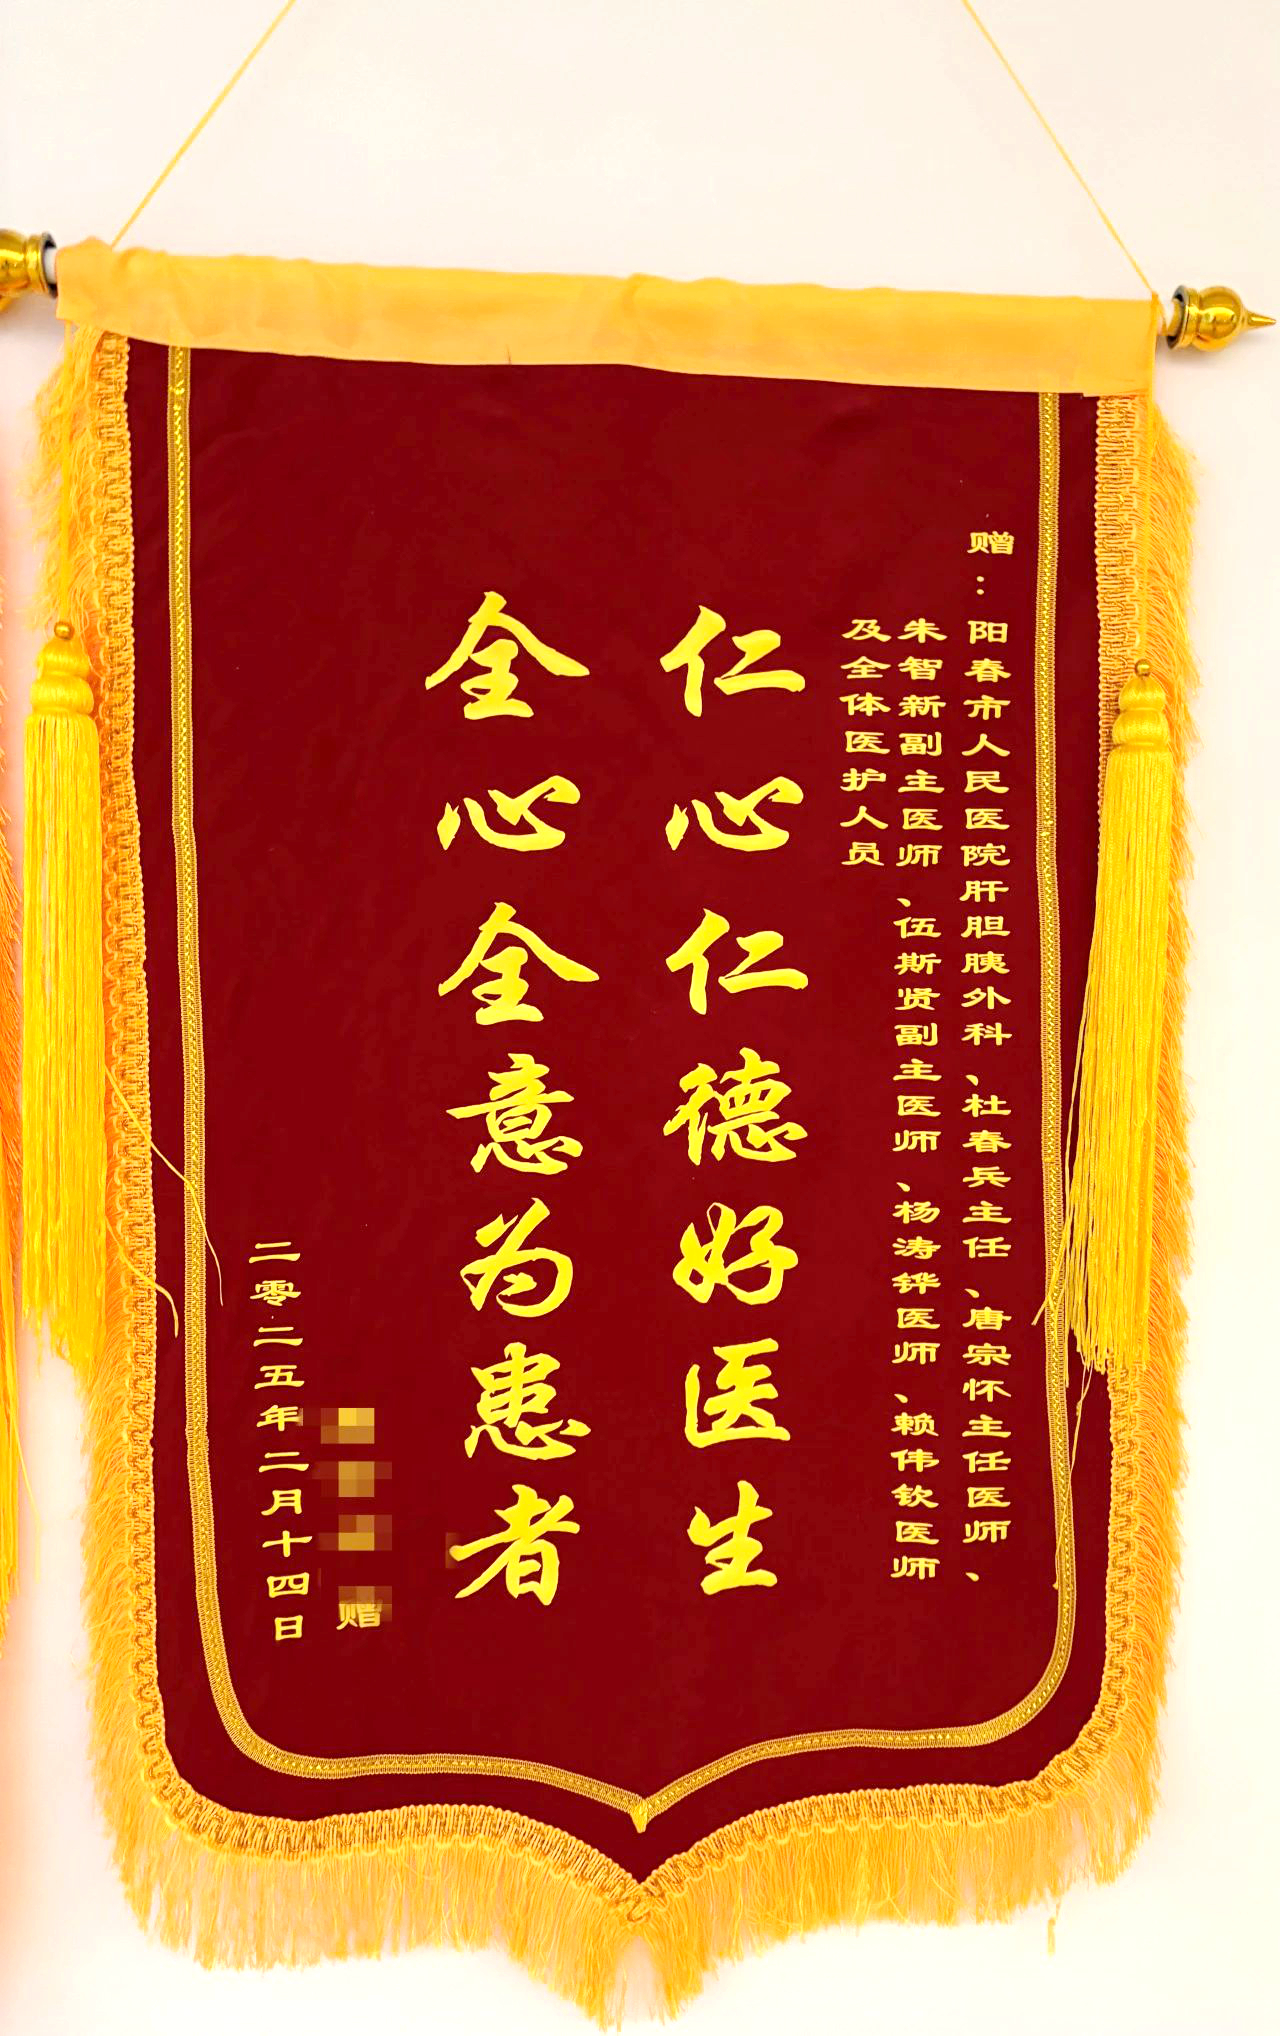 赠：阳春市人民医院肝胆胰外科、杜春兵主任、唐宗怀主任医师、
朱智新副主医师、伍斯贤副主医师、杨涛铧医师、赖伟钦医师
及全体医护人员
仁心仁德好医生
全心全意为患者
赠
二零二五年二月十四日